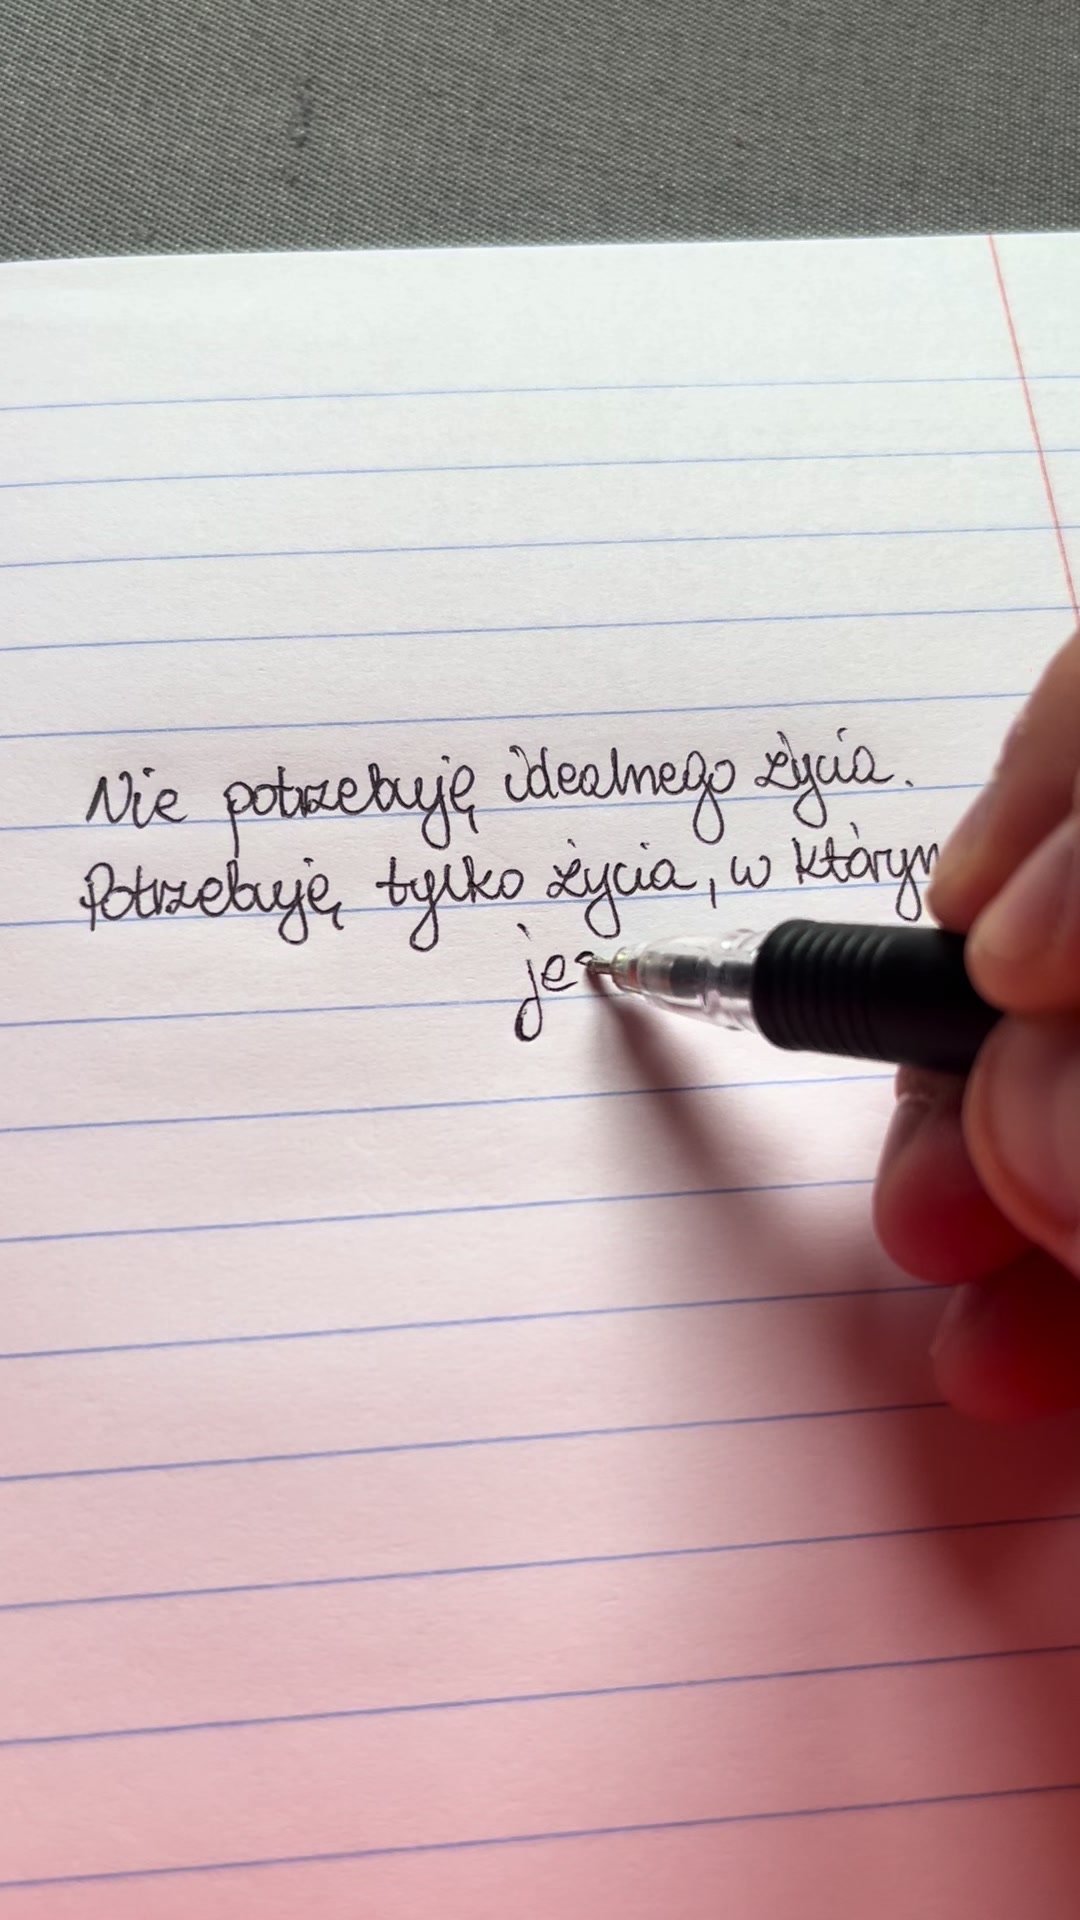 Nie potrzebuję idealnego życia.
Potrzebuję tylko życia, w którym
je